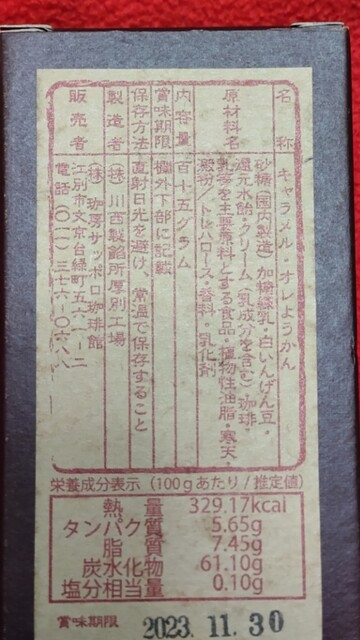 名称 キャラメル・オレようかん
原材料名 砂糖(国内製造)加糖練乳・白いんげん豆・
還元水飴・クリーム(乳成分を含む)珈琲・
乳等を主要原料とする食品・植物性油脂・寒天・
澱粉/トレハロース・香料・乳化剤
内容量 百十五グラム
賞味期限 欄外下部に記載
保存方法 直射日光を避け、常温で保存すること
製造者 (株)川西製餡所厚別工場
販売者 (株)珈房サッポロ珈琲館
江別市文京台緑町五六一-二
電話(〇一一)三七六-〇六八八
栄養成分表示(100gあたり/推定値)
熱量 329.17kcal
タンパク質 5.65g
脂質 7.45g
炭水化物 61.10g
塩分相当量 0.10g
賞味期限 2023.11.30